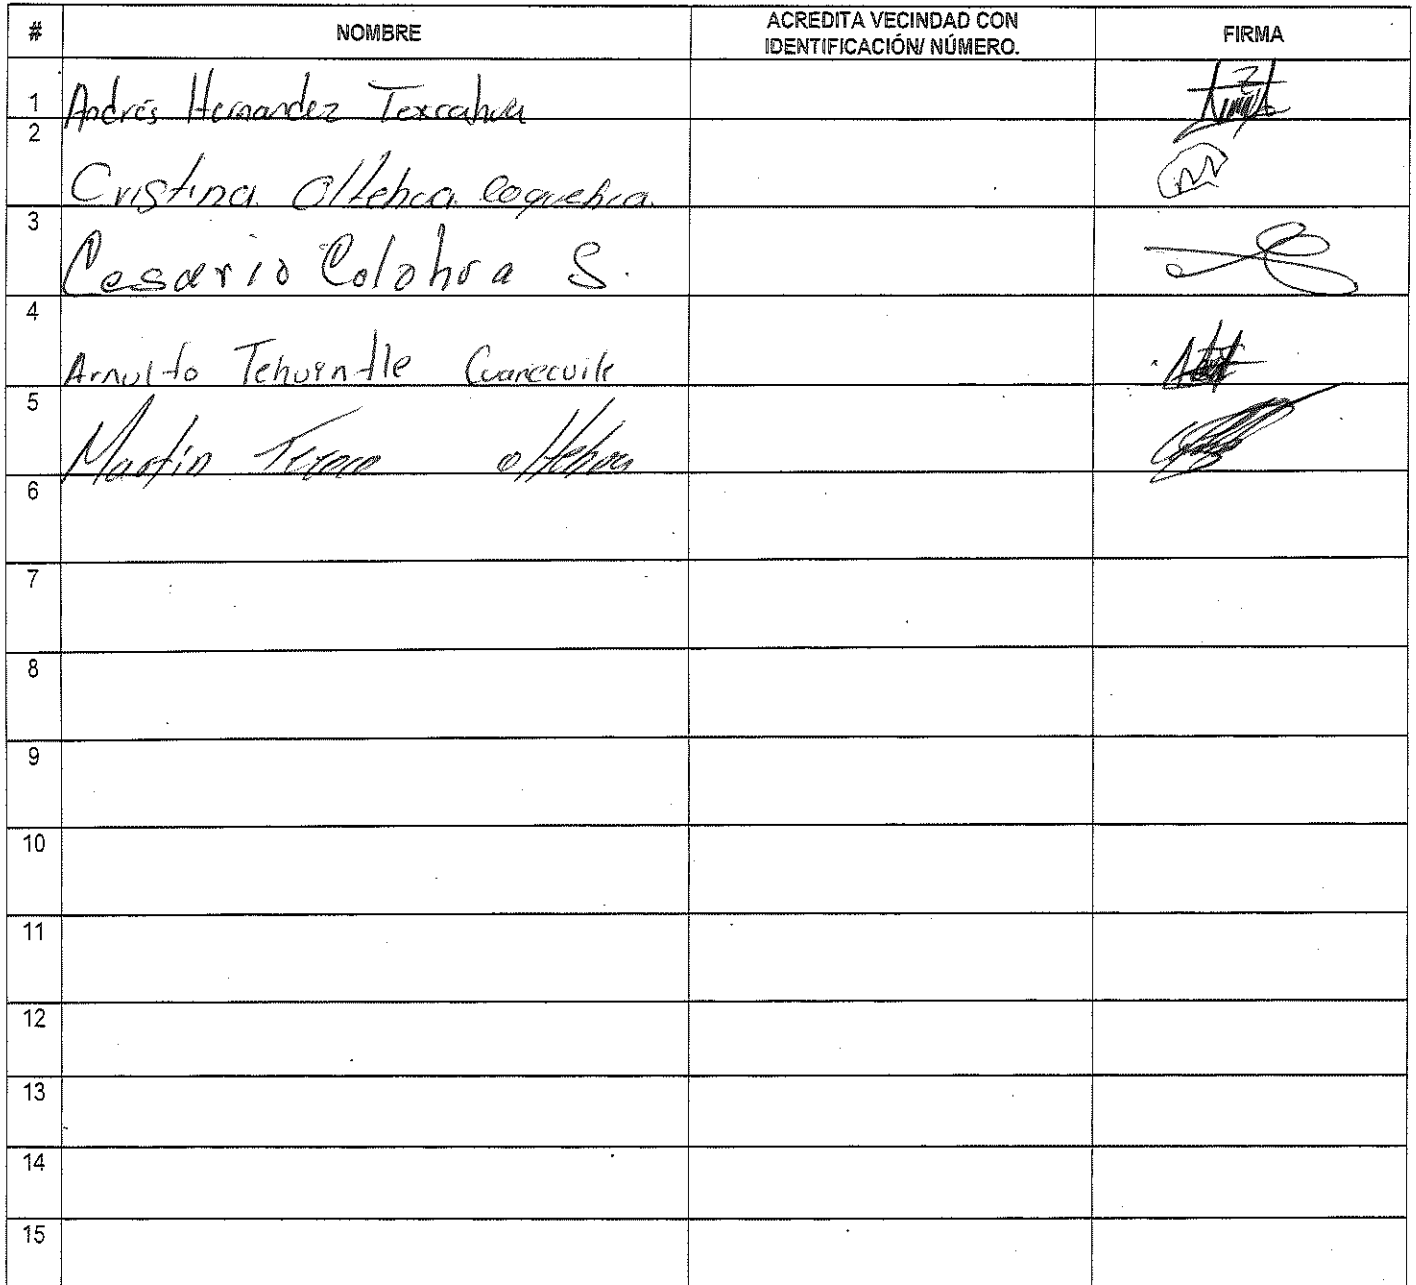 # NOMBRE ACREDITA VECINDAD CON IDENTIFICACIÓN/ NÚMERO. FIRMA
1 Andrés Hernandez Texcahua
2 Cristina Oltehua Coquehua
3 Cesario Colohua S.
4 Arnulfo Tehuintle Cuanecuile
5 Martín oltehua
6
7
8
9
10
11
12
13
14
15